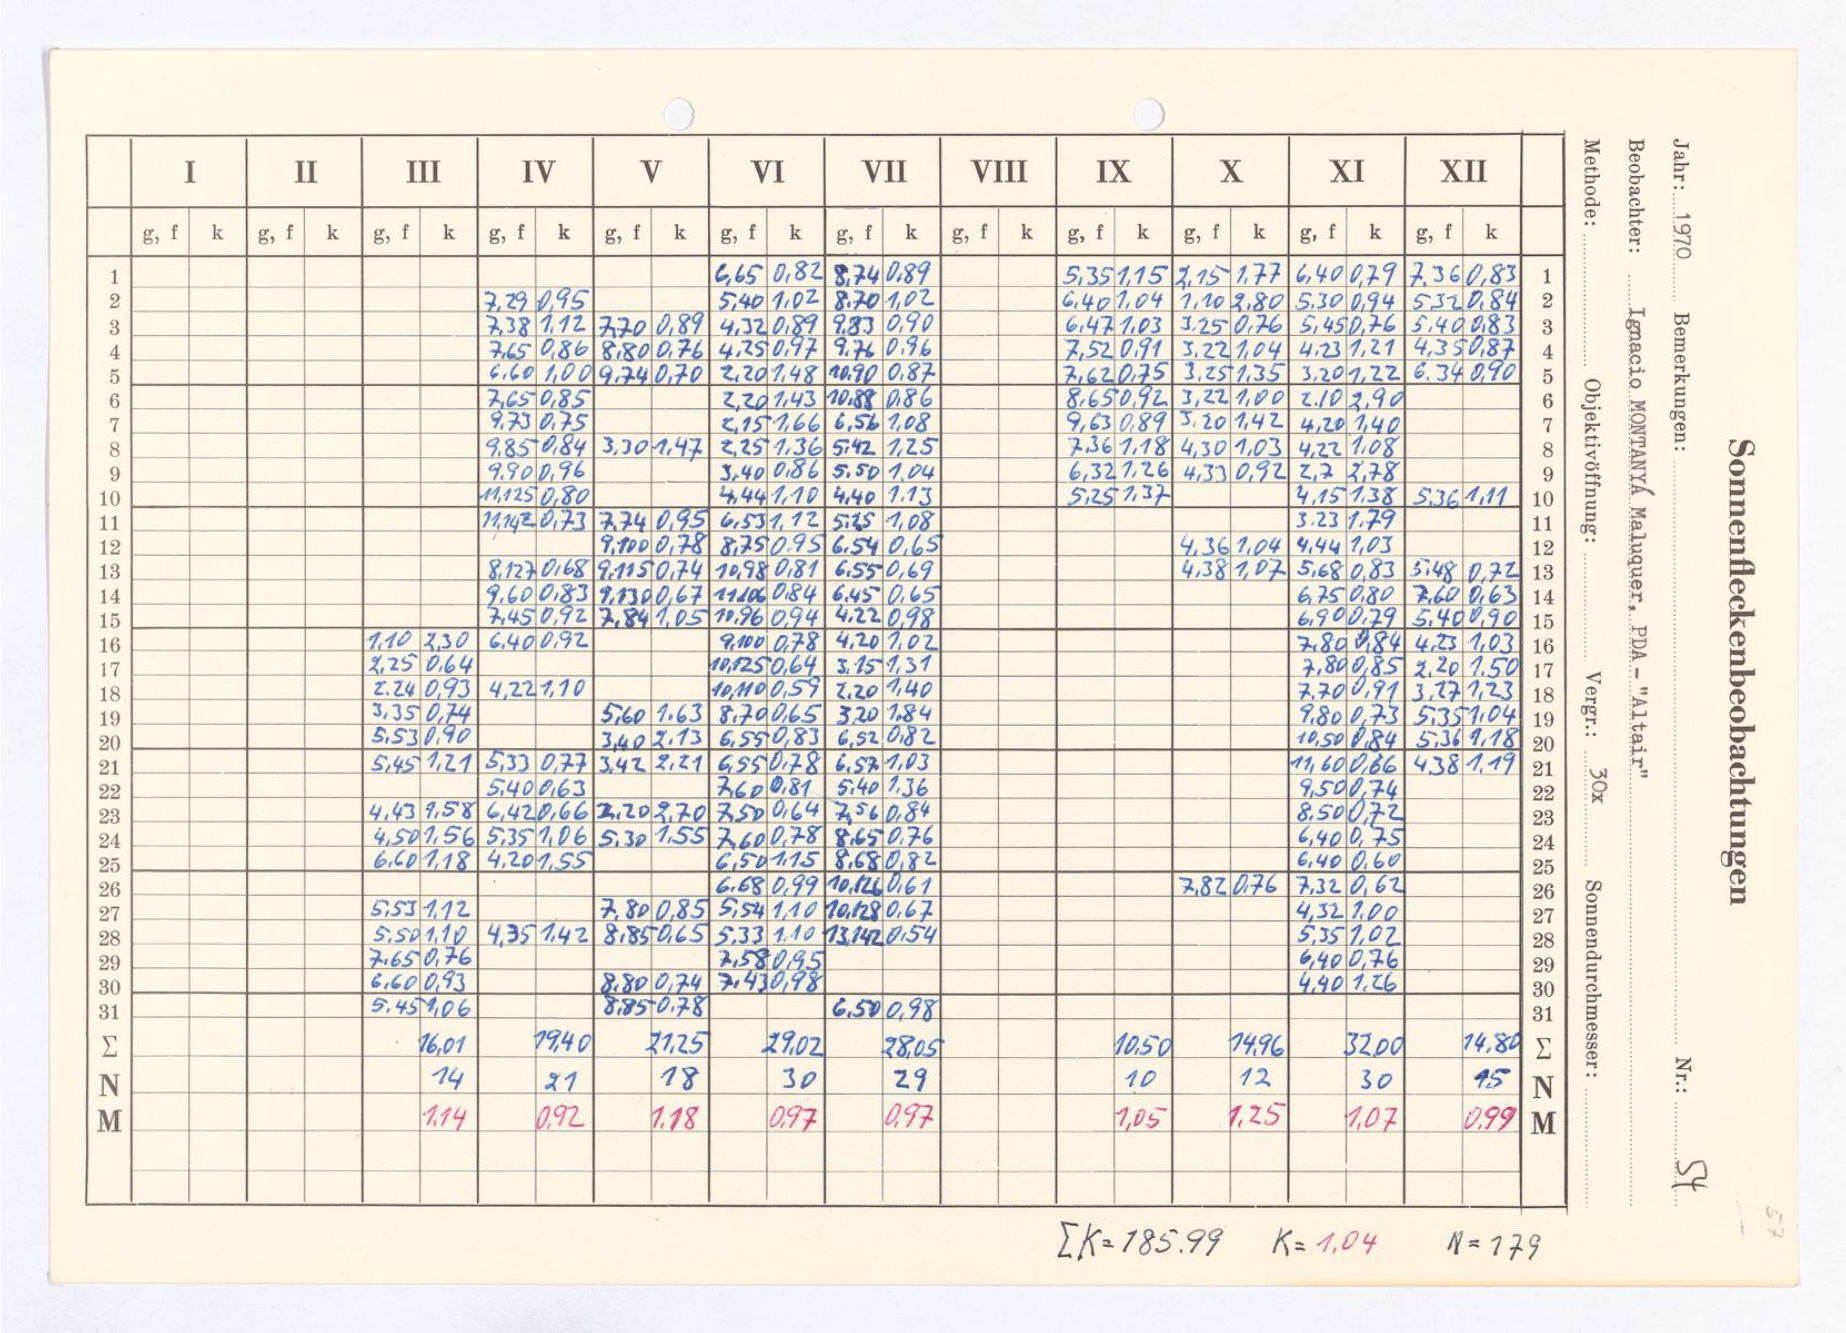 Sonnenfleckenbeobachtungen
Jahr: 1970 Bemerkungen: Nr.:
Beobachter: Ignacio MONTANYÁ Maluquer, PDA - "Altair"
Methode: Objektivöffnung: Vergr.: 30x Sonnendurchmesser:
I II III IV V VI VII VIII IX X XI XII
g, f k g, f k g, f k g, f k g, f k g, f k g, f k g, f k g, f k g, f k g, f k g, f k
1 6,65 0,82 8,74 0,89 5,35 1,15 2,15 1,77 6,40 0,79 7,36 0,83 1
2 7,29 0,95 5,40 1,02 8,70 1,02 6,40 1,04 1,10 2,80 5,30 0,94 5,32 0,84 2
3 7,38 1,12 7,70 0,89 4,32 0,89 9,83 0,90 6,47 1,03 3,25 0,76 5,45 0,76 5,40 0,83 3
4 7,65 0,86 8,80 0,76 4,25 0,97 9,76 0,96 7,52 0,91 3,22 1,04 4,23 1,21 4,35 0,87 4
5 6,60 1,00 9,74 0,70 2,20 1,48 10,90 0,87 7,62 0,75 3,25 1,35 3,20 1,22 6.34 0,90 5
6 7,65 0,85 2,20 1,43 10,88 0,86 8,65 0,92 3,22 1,00 2.10 2,90 6
7 9,73 0,75 2,15 1,66 6,56 1,08 9,63 0,89 3.20 1,42 4,20 1,40 7
8 9,85 0,84 3,30 1,47 2,25 1,36 5,42 1,25 7,36 1,18 4,30 1,03 4,22 1,08 8
9 9,90 0,96 3,40 0,86 5,50 1,04 6,32 1,26 4,33 0,92 2,7 2,78 9
10 11,125 0,80 4,44 1,10 4,40 1,13 5,25 1,37 4,15 1,38 5,36 1,11 10
11 11,142 0,73 7,74 0,95 6,53 1,12 5,25 1,08 3.23 1,79 11
12 9,100 0,78 8,75 0,95 6.54 0,65 4,36 1,04 4,44 1,03 12
13 8,127 0,68 9,115 0,74 10,98 0,81 6,55 0,69 4,38 1,07 5,68 0,83 5,48 0,72 13
14 9,60 0,83 9,130 0,67 11,106 0,84 6,45 0,65 6,75 0,80 7,60 0,63 14
15 7,45 0,92 7,84 1,05 10,96 0,94 4,22 0,98 6,90 0,79 5,40 0,90 15
16 1,10 2,30 6,40 0,92 9,100 0,78 4,20 1,02 7,80 0,84 4,23 1,03 16
17 2,25 0,64 10,125 0,64 3.15 1,31 7,80 0,85 2,20 1,50 17
18 2.24 0,93 4,22 1,10 10,110 0,59 2,20 1,40 7,70 0,91 3,27 1,23 18
19 3,35 0,74 5,60 1.63 8,70 0,65 3,20 1,84 9,80 0,73 5,35 1,04 19
20 5,53 0,90 3,40 2.13 6,55 0,83 6,52 0,82 10,50 0,84 5,36 1,18 20
21 5,45 1,21 5,33 0,77 3,42 2,21 6,55 0,78 6,57 1,03 11,60 0,66 4,38 1,19 21
22 5,40 0,63 7,60 0,81 5,40 1,36 9,50 0,74 22
23 4,43 1,58 6,42 0,66 2,20 2,70 7,50 0,64 7,56 0,84 8,50 0,72 23
24 4,50 1,56 5,35 1,06 5,30 1.55 7,60 0,78 8,65 0,76 6,40 0,75 24
25 6.60 1,18 4,20 1,55 6,50 1,15 8,68 0,82 6,40 0,60 25
26 6.68 0,99 10,126 0,61 7,82 0,76 7,32 0,62 26
27 5,53 1,12 7,80 0,85 5,54 1,10 10,128 0,67 4,32 1.00 27
28 5,50 1,10 4,35 1,42 8,85 0,65 5,33 1.10 13,142 0,54 5,35 1,02 28
29 7.65 0,76 7,58 0,95 6,40 0,76 29
30 6,60 0,93 8,80 0,74 7,43 0,98 4,40 1.26 30
31 5.45 1,06 8,85 0,78 6,50 0,98 31
Σ 16,01 19,40 21,25 29,02 28,05 10,50 14,96 32,00 14,80 Σ
N 14 21 18 30 29 10 12 30 15 N
M 1,14 0,92 1,18 0,97 0,97 1,05 1,25 1,07 0,99 M
ΣK=185.99 K=1,04 N=179
57